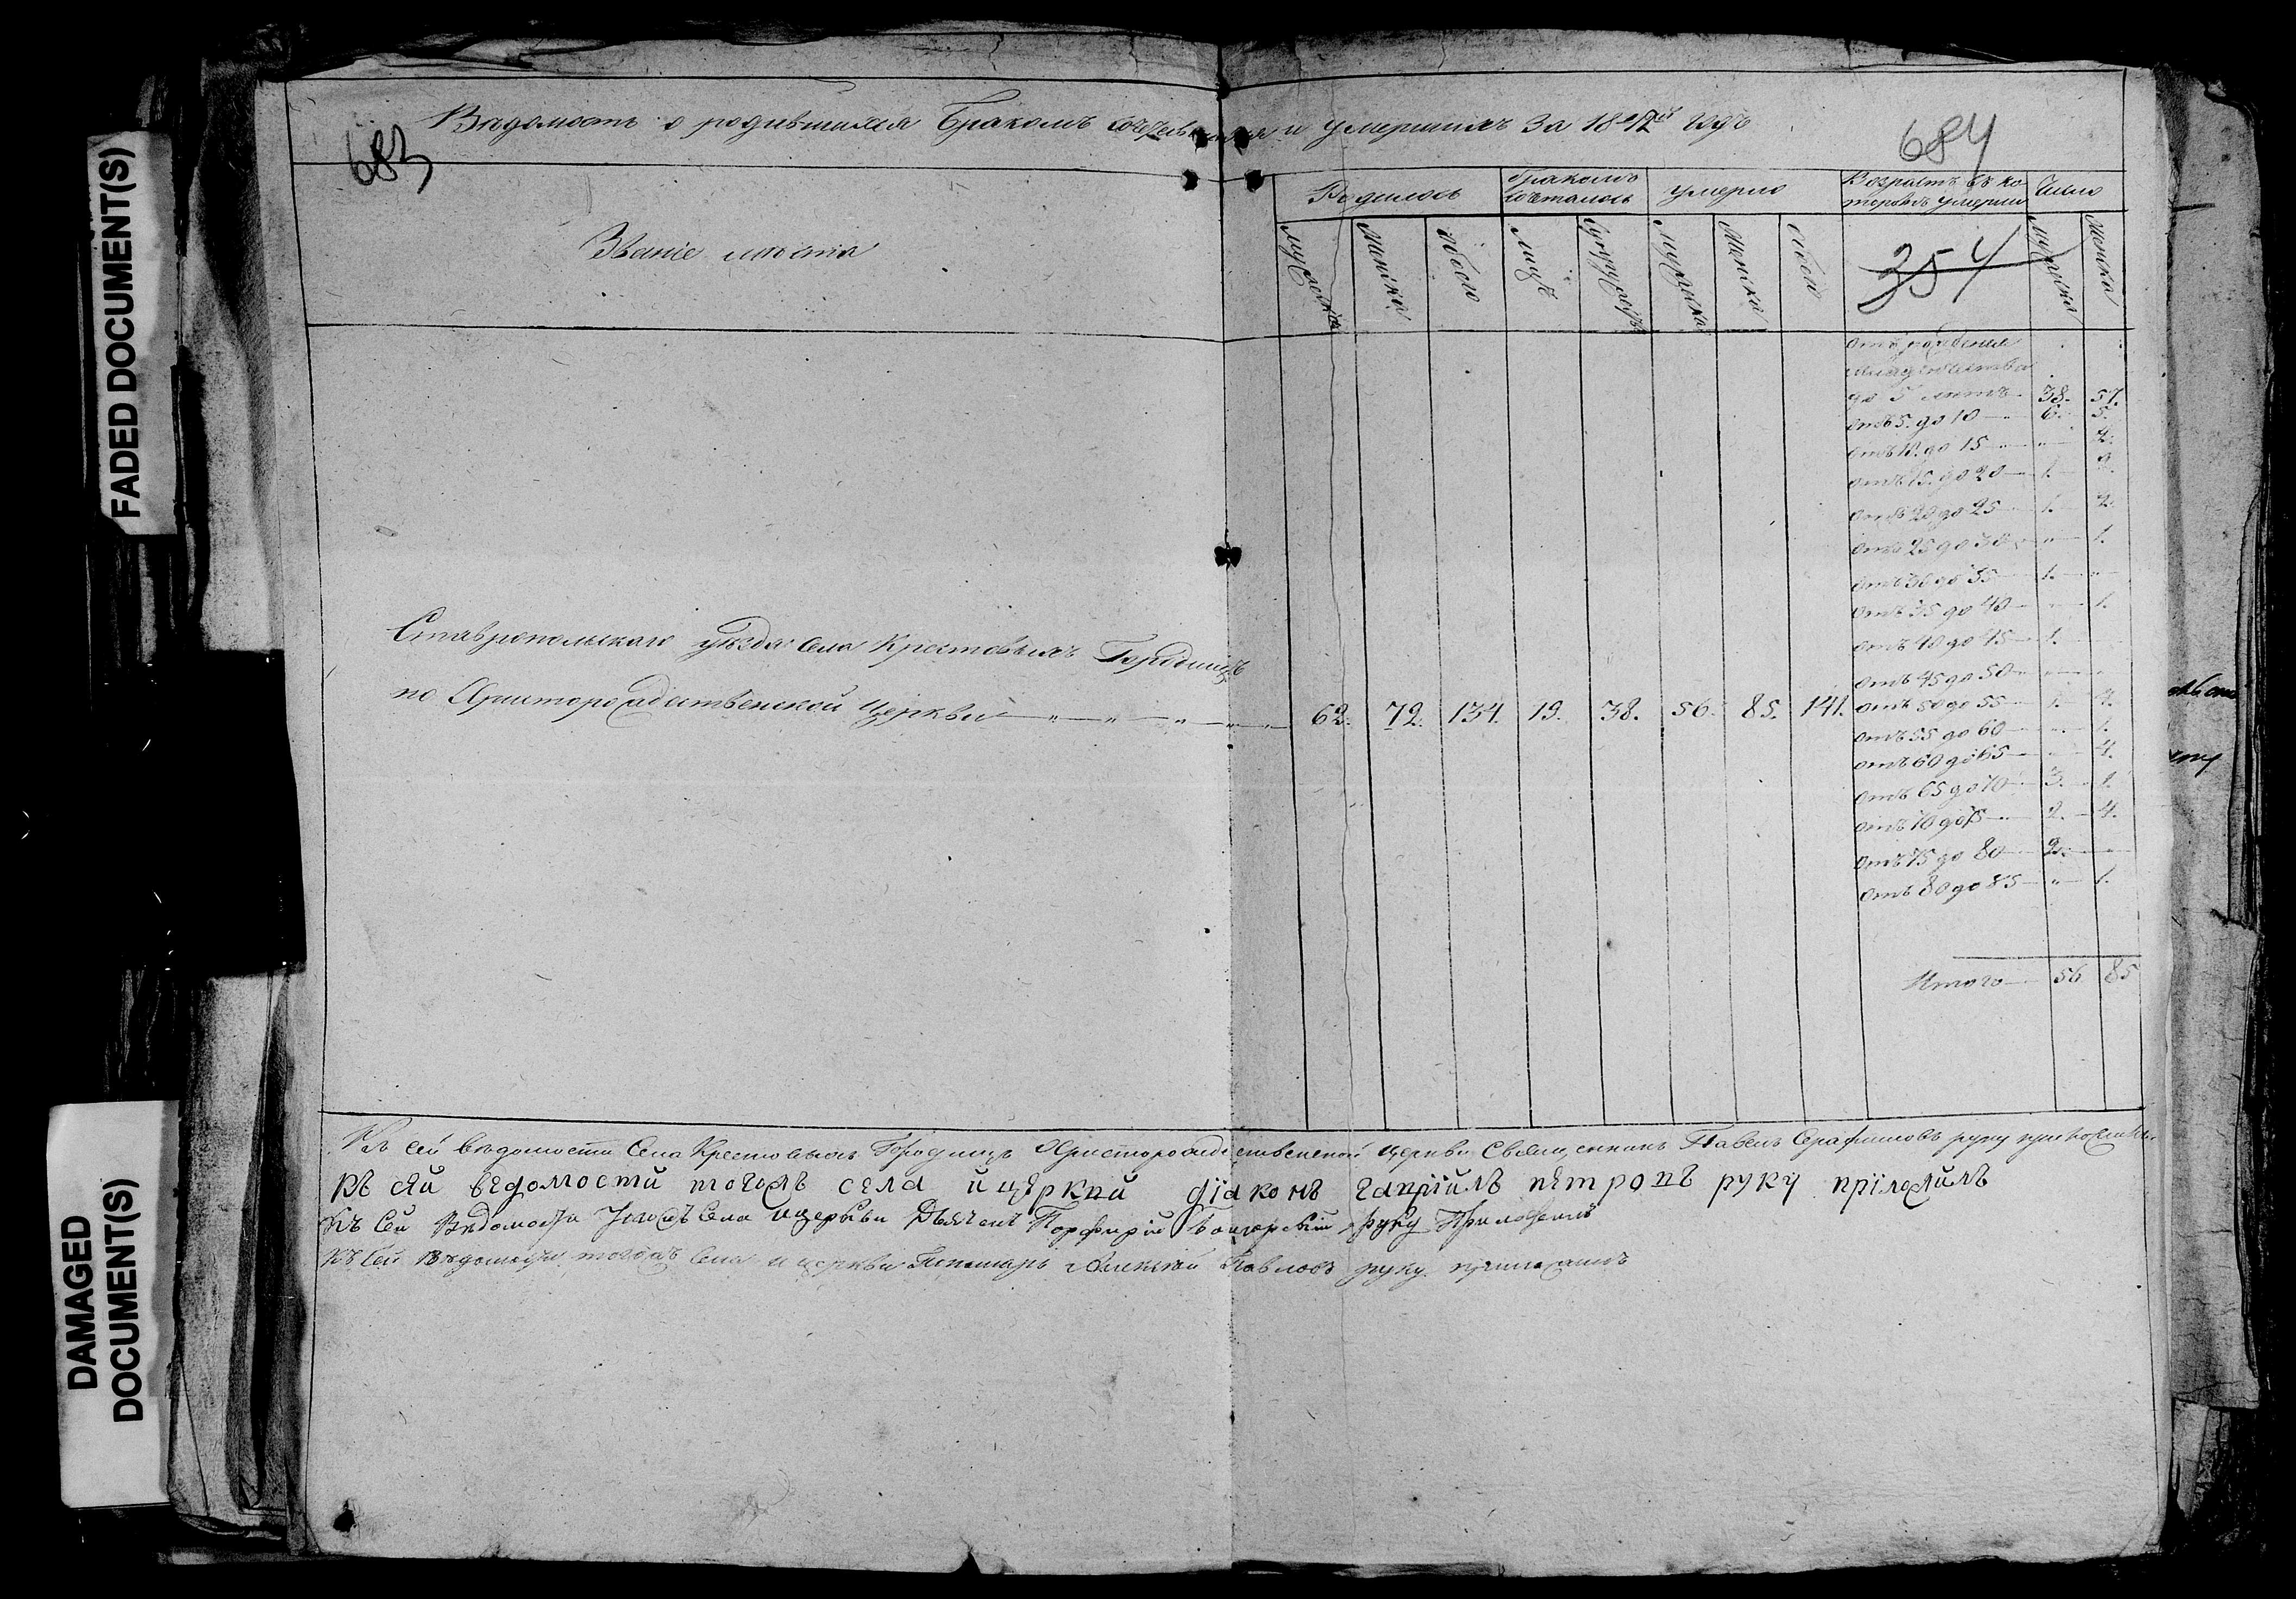 FADED DOCUMENT(S)
DAMAGED
DOCUMENT(S)
Вѣдомость о родившихся Бракомъ и умершихъ За 18 годъ
683
684
Званіе мѣста
Родилось
бракомъ
сочеталось
умерло
Возрастъ въ ко-
торомъ умерли
Число
мужеска
женска
обоего
лицъ
супружествъ
мужеска
женска
обоего
354
мужеска
женска
отъ рожденія
младенчества
до 5 лѣтъ 38. 57.
отъ 5. до 10 6. 5.
отъ 10. до 15 " 2.
отъ 15. до 20 1. 2.
отъ 20 до 25 1. 2.
отъ 25 до 30 " 1.
отъ 30 до 35 1. "
отъ 35 до 40 " 1.
отъ 40 до 45 1.
отъ 45 до 50
отъ 50 до 55 1.
отъ 55 до 60 " 1.
отъ 60 до 65 " 4.
отъ 65 до 70 3. 1.
отъ 70 до 75 2. 4.
отъ 75 до 80 2.
отъ 80 до 85 " 1.
Ставропольскаго уѣзда Села Крестовыхъ Городищъ
по Христорождественской Церкви 62. 72. 134. 19. 38. 56. 85. 141.
Итого 56 85
Къ сей вѣдомости Села Крестовыхъ Городищъ Христорождественской Церкви Священникъ Павелъ Серафимовъ руку приложилъ
къ сѣй вѣдомости тогожъ села и цѣркви дїаконъ гавріилъ пѣтровъ руку прїложилъ
Къ Сей Вѣдомости Тогожъ Села и церкви Дьячекъ Порфирій руку Приложилъ
Къ Сей Вѣдомости тогожъ Села и церкви Пономарь Алексѣй Павловъ руку приложилъ